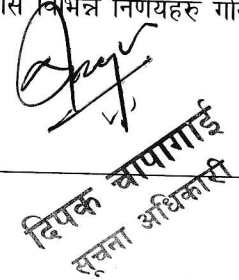 विभिन्न निर्णयहरु
दिपक चापागाई
सूचना अधिकारी